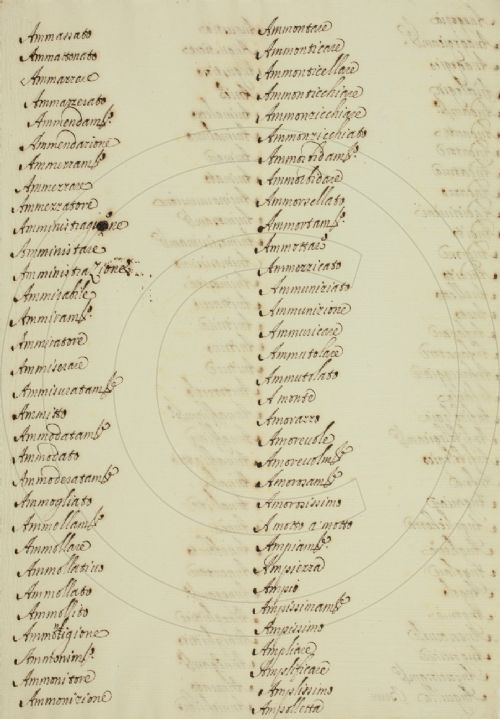 Ammassato
Ammatonato
Ammazzare
Ammazzesato
Ammendamto.
Ammendazione
Ammezzamto.
Ammezzare
Ammezzatore
Amministrare
Amministrazione
Ammirabile
Ammiramto.
Ammiratore
Ammiserare
Ammisuratamte
Ammitto
Ammodatamte
Ammodato
Ammodestamte
Ammogliato
Ammollamto.
Ammollare
Ammollativo
Ammollato
Ammollito
Ammonigione
Ammonimto.
Ammonitore
Ammonizione
Ammontare
Ammonticare
Ammonticellare
Ammonticchiare
Ammonzicchiare
Ammonzicchiato
Ammorbidamto.
Ammorbidare
Ammorsellato
Ammortamto.
Ammortare
Ammorzicato
Ammuniziato
Ammunizione
Ammuricare
Ammutolare
Ammutolato
A monte
Amorazzo
Amorevole
Amorevolmte
Amorosamte
Amorosissimo
A motto a motto
Ampiamte.
Ampiezza
Ampio
Ampissimamte
Ampissimo
Ampliare
Amplificare
Amplissimo
Ampolletta